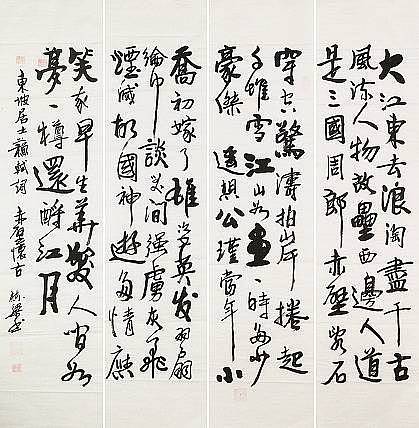 大江東去浪淘盡千古
風流人物故壘西邊人道
是三國周郎赤壁亂石
穿空驚濤拍岸捲起
千堆雪江山如畫一時多少
豪傑遙想公瑾當年小
喬初嫁了雄姿英发羽扇
綸巾談笑間强虜灰飛
煙滅故國神遊多情應
笑我早生華髮人間如
夢一樽還酹江月
東坡居士蘇軾詞赤壁懷古